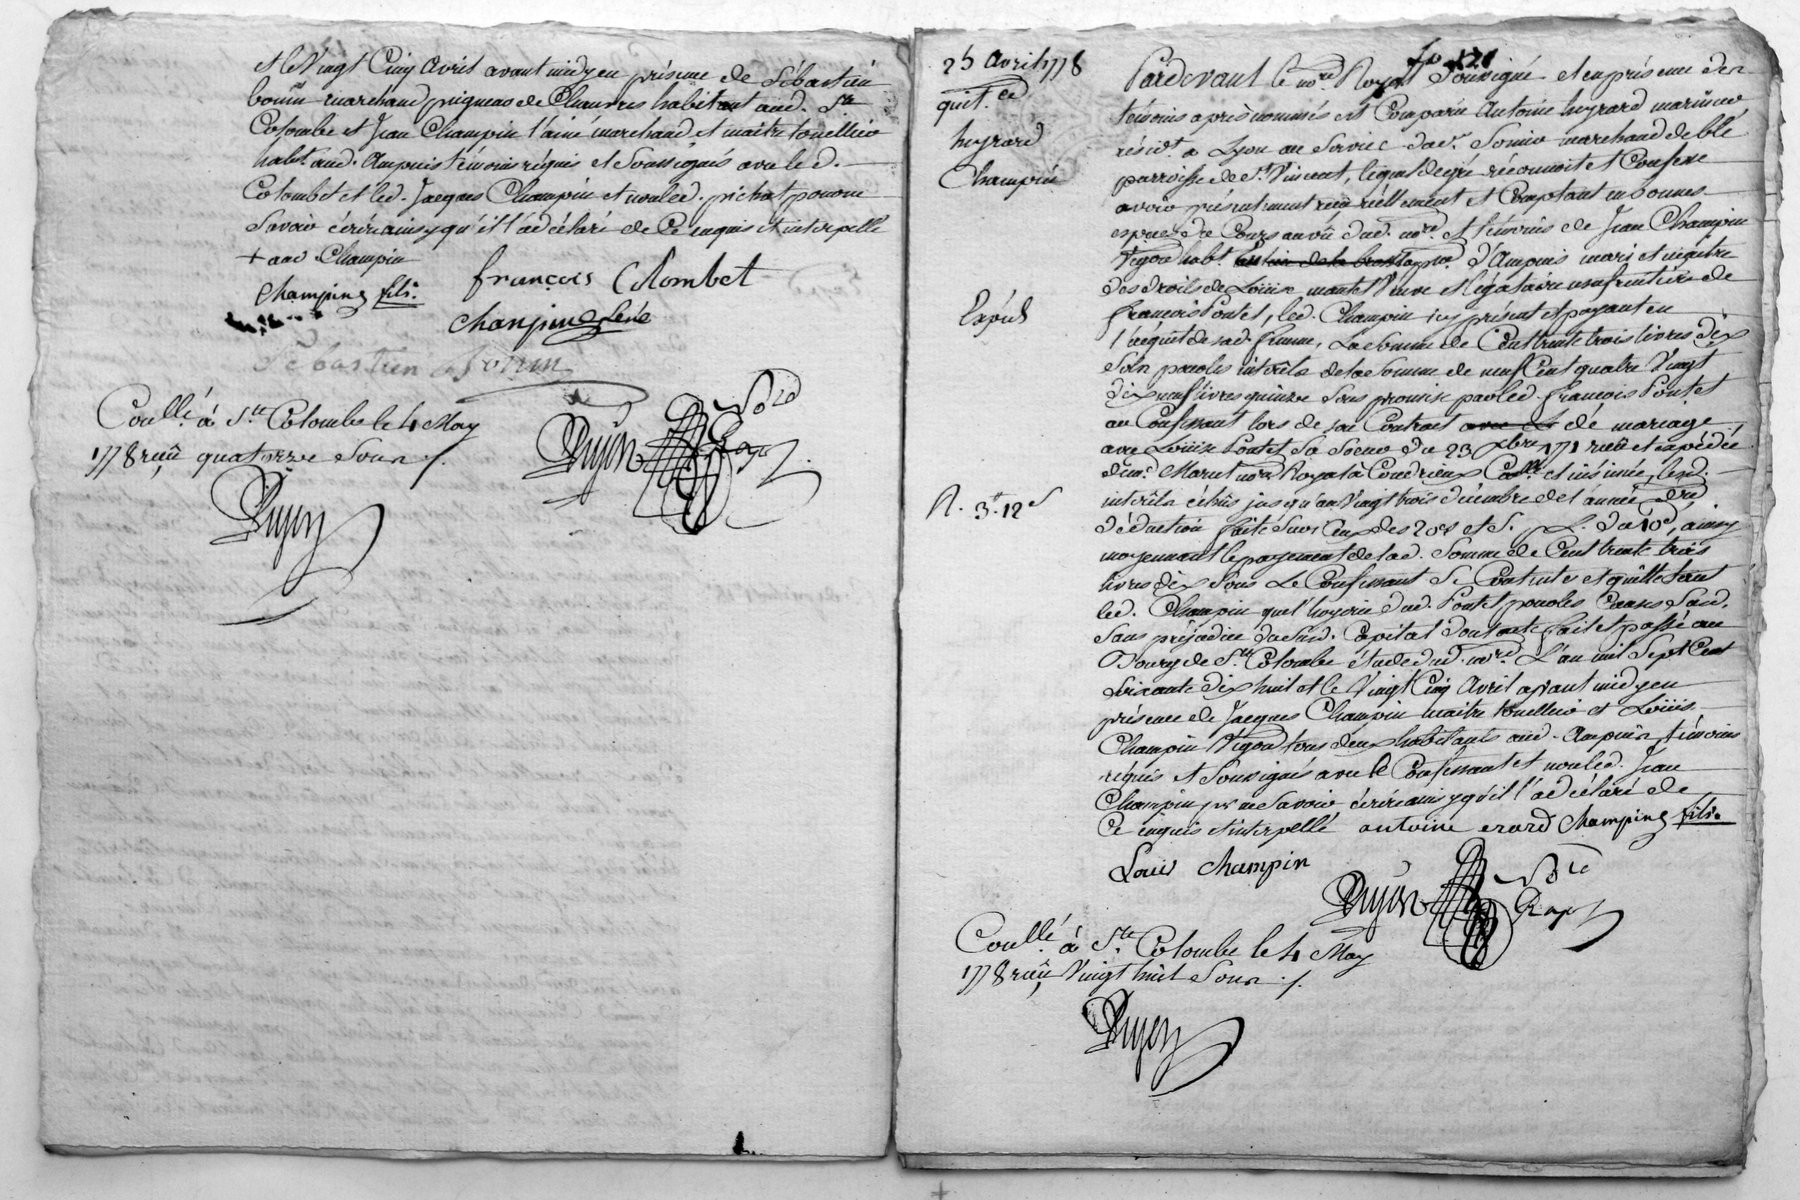 et le Vingt Cinq avril avant midy en présence de Sébastien
bonin marchand peigneur de Chanvres habitant aud. Ste
Colombe et Jean Champin l'ainé marchand et maitre tonellier
habit. aud. Ampuis témoins réquis et Soussignés avec led.
Colombet et led. Jacques Champin et non led. pichat pour ne
Savoir écrire ainsy qu'il l'a déclaré de Ce enquis et interpellé
+ aud. Champin
Champing fils.
françois Colombet
Champine
Sébastien bonin
Coullé à Ste Colombe le 4 May
1778 reçu quatorze Sous ./.
Dujon
Dujon Nore Royal
25 avril 1778
quit.ce
heyrard
Champin
Expéd
R. 3tt 12s
fo 121
Pardevant le nore Royal Soussigné et en présence des
témoins après nommés est Comparu Antoine heyrard marinier
résidt. a Lyon au Service de sr. marchand de blé
parroisse de St. Vincent, lequel de gré réconnoit et Confesse
avoir présentement reçu réellement et Comptant en bonnes
espèces de Cours au vû dud. nore. et témoins de Jean Champin
Vigon habt. d'Ampuis mari et maitre
des droits de Louise montet Veuve et légataire usufruitière de
françois Pontet, led. Champin icy présent et payant en
l'acquit de sad. femme, La Somme de Cent trente trois livres dix
Sols pour les intérêts de la Somme de neuf Cent quatre Vingt
dix neuf livres quinze Sous promise par led. françois Pontet
au Confessant lors de son Contrat de mariage
avec Louise Pontet Sa Soeur du 23 xbre 1771 reçu et expédié
Me. Moret nore Royal à Condrieux Collé et insinué, lesd.
intérêts échûs jusqu'au Vingt trois décembre de l'année dre
déduction faite Sur Ceux des 20es et S. p. L. du 10e, ainsy
moyennant le payement de lad. Somme de Cent trente trois
livres dix Sous Le Confessant Se Contente et quitte tant
led. Champin que l'hoyrie dud. Pontet pour les Causes Susd.
Sans préjudice du Susd. Capital dont acte fait et passé au
Bourg de Ste Colombe étude dud. nore. L'an mil Sept Cent
Soixante dix huit et le Vingt Cinq Avril avant midy en
présence de Jacques Champin maitre tonellier et Loüis
Champin Vigon tous deux habitants aud. Ampuis témoins
réquis et Soussignés avec le Confessant et non led. Jean
Champin pr ne Savoir écrire ainsy qu'il l'a déclaré de
Ce enquis et interpellé antoine erard Champing fils.
Louis Champin
Dujon Nore Royal
Coullé à Ste Colombe le 4 May
1778 reçu Vingt huit Sous ./.
Dujon